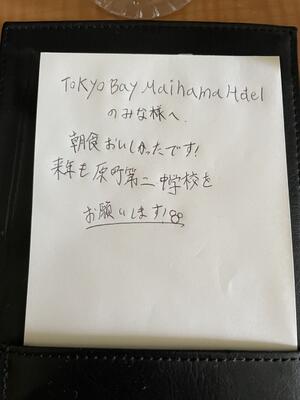 Tokyo Bay Maihama Hotel
のみな様へ.
朝食おいしかったです!
来年も原町第二中学校を
お願いします!